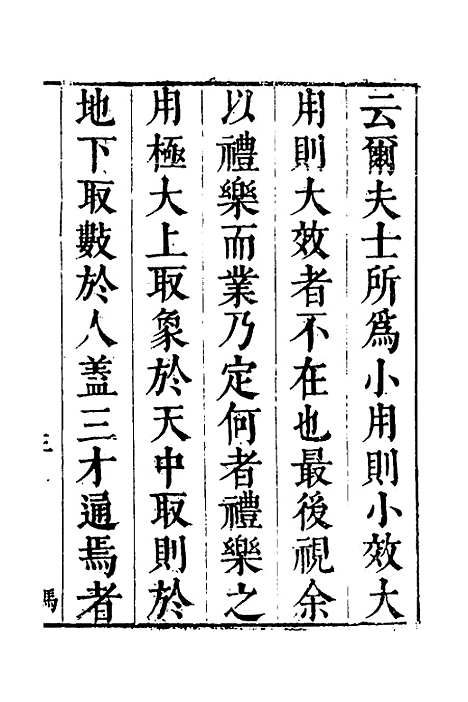 云爾夫士所爲小用則小效大
用則大效者不在也最後視余
以禮樂而業乃定何者禮樂之
用極大上取象於天中取則於
地下取數於人蓋三才通焉者
三
馮